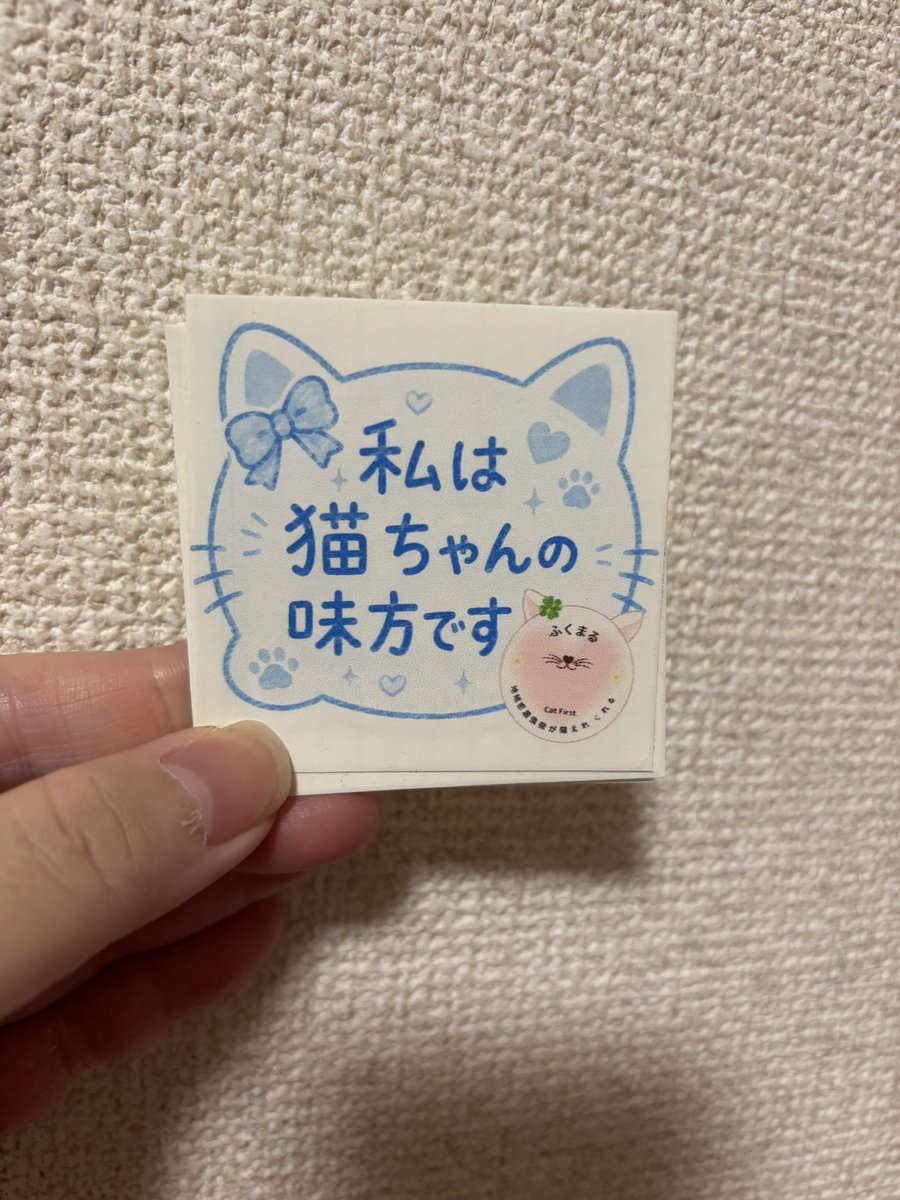 私は
猫ちゃんの
味方です
ふくまる
Cat First